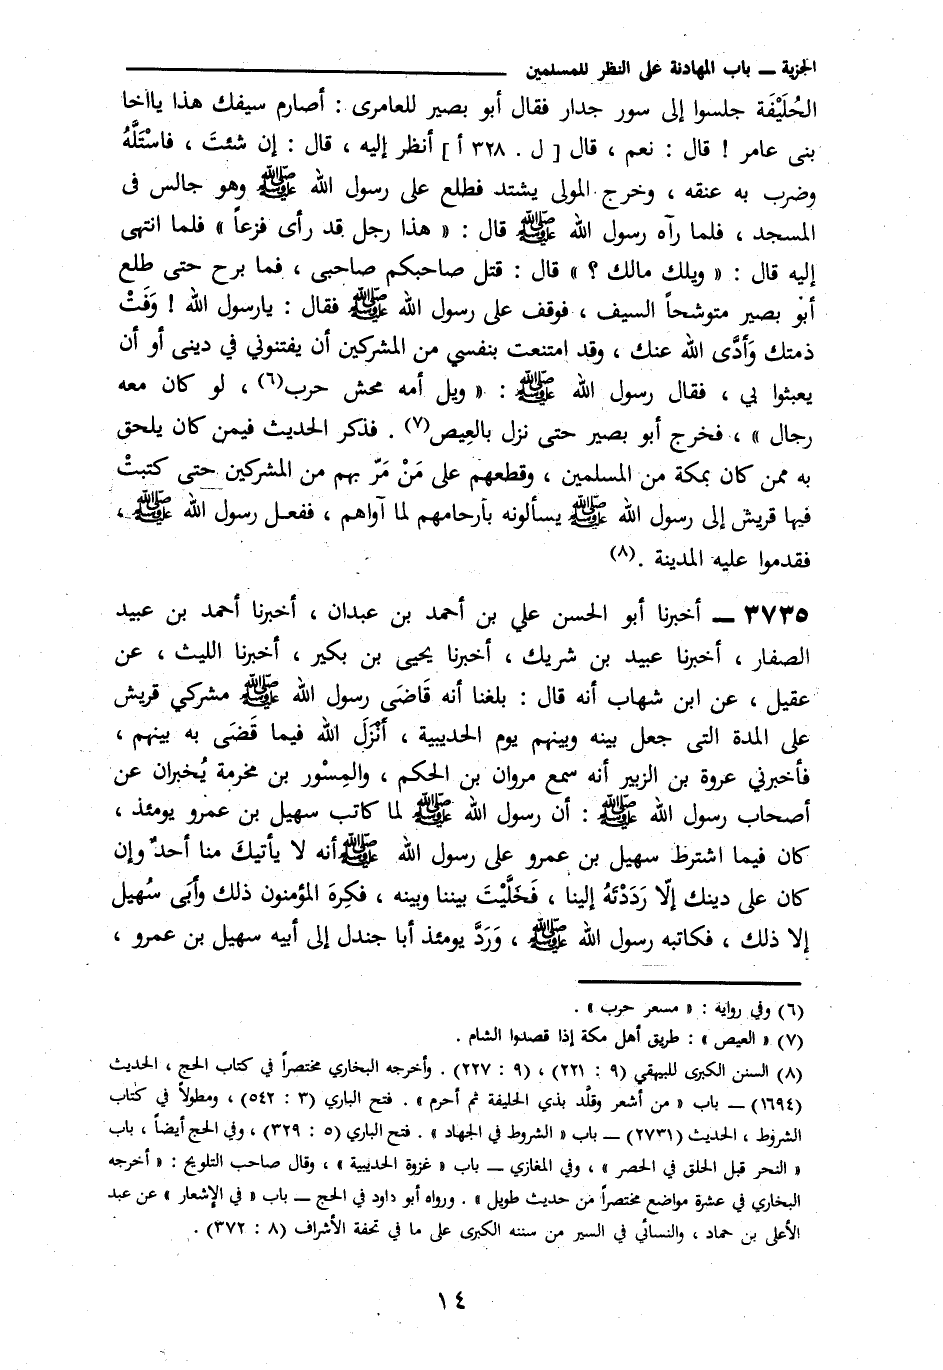 الجزية ــ باب المهادنة على النظر للمسلمين
الحُلَيْفَة جلسوا إلى سور جدار فقال أبو بصير للعامرى : أصارم سيفك هذا ياأخا
بنى عامر ! قال : نعم ، قال [ ل . ٣٢٨ أ ] أنظر إليه ، قال : إن شئتَ ، فاسْتَلَّهُ
وضرب به عنقه ، وخرج المولى يشتد فطلع على رسول الله ﷺ وهو جالس فى
المسجد ، فلما رآه رسول الله ﷺ قال : « هذا رجل قد رأى فزعاً » فلما انتهى
إليه قال : « ويلك مالك ؟ » قال : قتل صاحبكم صاحبى ، فما برح حتى طلع
أبو بصير متوشحاً السيف ، فوقف على رسول الله ﷺ فقال : يارسول الله ! وَفَتْ
ذمتك وَأَدَّى الله عنك ، وقد امتنعت بنفسي من المشركين أن يفتنوني في دينى أو أن
يعبثوا بي ، فقال رسول الله ﷺ : « ويل أمه محش حرب(٦) ، لو كان معه
رجال » ، فخرج أبو بصير حتى نزل بالعِيص(٧) . فذكر الحديث فيمن كان يلحق
به ممن كان بمكة من المسلمين ، وقطعهم على مَنْ مَرّ بهم من المشركين حتى كتبتْ
فيها قريش إلى رسول الله ﷺ يسألونه بأرحامهم لما آواهم ، ففعل رسول الله ﷺ ،
فقدموا عليه المدينة .(٨)
٣٧٣٥ ــ أخبرنا أبو الحسن علي بن أحمد بن عبدان ، أخبرنا أحمد بن عبيد
الصفار ، أخبرنا عبيد بن شريك ، أخبرنا يحيى بن بكير ، أخبرنا الليث ، عن
عقيل ، عن ابن شهاب أنه قال : بلغنا أنه قَاضَى رسول الله ﷺ مشركي قريش
على المدة التى جعل بينه وبينهم يوم الحديبية ، أَنْزَلَ الله فيما قَضَى به بينهم ،
فأخبرني عروة بن الزبير أنه سمع مروان بن الحكم ، والمِسْور بن مخرمة يُخبران عن
أصحاب رسول الله ﷺ : أن رسول الله ﷺ لما كاتب سهيل بن عمرو يومئذ ،
كان فيما اشترط سهيل بن عمرو على رسول الله ﷺ أنه لا يأتيكَ منا أحدٌ وإن
كان على دينك إلّا رَدَدْتَهُ إلينا ، فَخَلَّيْتَ بيننا وبينه ، فكرِهَ المؤمنون ذلك وأَبَى سُهيل
إلا ذلك ، فكاتبه رسول الله ﷺ ، وَرَدَّ يومئذ أبا جندل إلى أبيه سهيل بن عمرو ،
(٦) وفي رواية : « مسعر حرب » .
(٧) « العيص » : طريق أهل مكة إذا قصدوا الشام .
(٨) السنن الكبرى للبيهقي (٩ : ٢٢١) ، (٩ : ٢٢٧) . وأخرجه البخاري مختصراً في كتاب الحج ، الحديث
(١٦٩٤) ــ باب « من أشعر وقلَّد بذي الحليفة ثم أحرم » . فتح الباري (٣ : ٥٤٢) ، ومطولاً في كتاب
الشروط ، الحديث (٢٧٣١) ــ باب « الشروط في الجهاد » . فتح الباري (٥ : ٣٢٩) ، وفي الحج أيضاً ، باب
« النحر قبل الحلق في الحصر » ، وفي المغازي ــ باب « غزوة الحديبية » ، وقال صاحب التلويح : « أخرجه
البخاري في عشرة مواضع مختصراً من حديث طويل » . ورواه أبو داود في الحج ــ باب « في الإشعار » عن عبد
الأعلى بن حماد ، والنسائي في السير من سننه الكبرى على ما في تحفة الأشراف (٨ : ٣٧٢) .
١٤